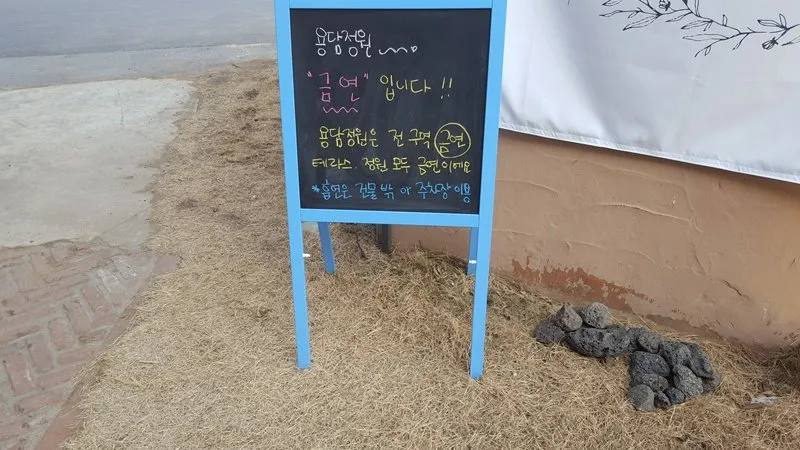 용담정원
"금연" 입니다!!
용담정원은 전 구역 금연
테라스, 정원 모두 금연이에요
*흡연은 건물 밖 야 주차장 이용